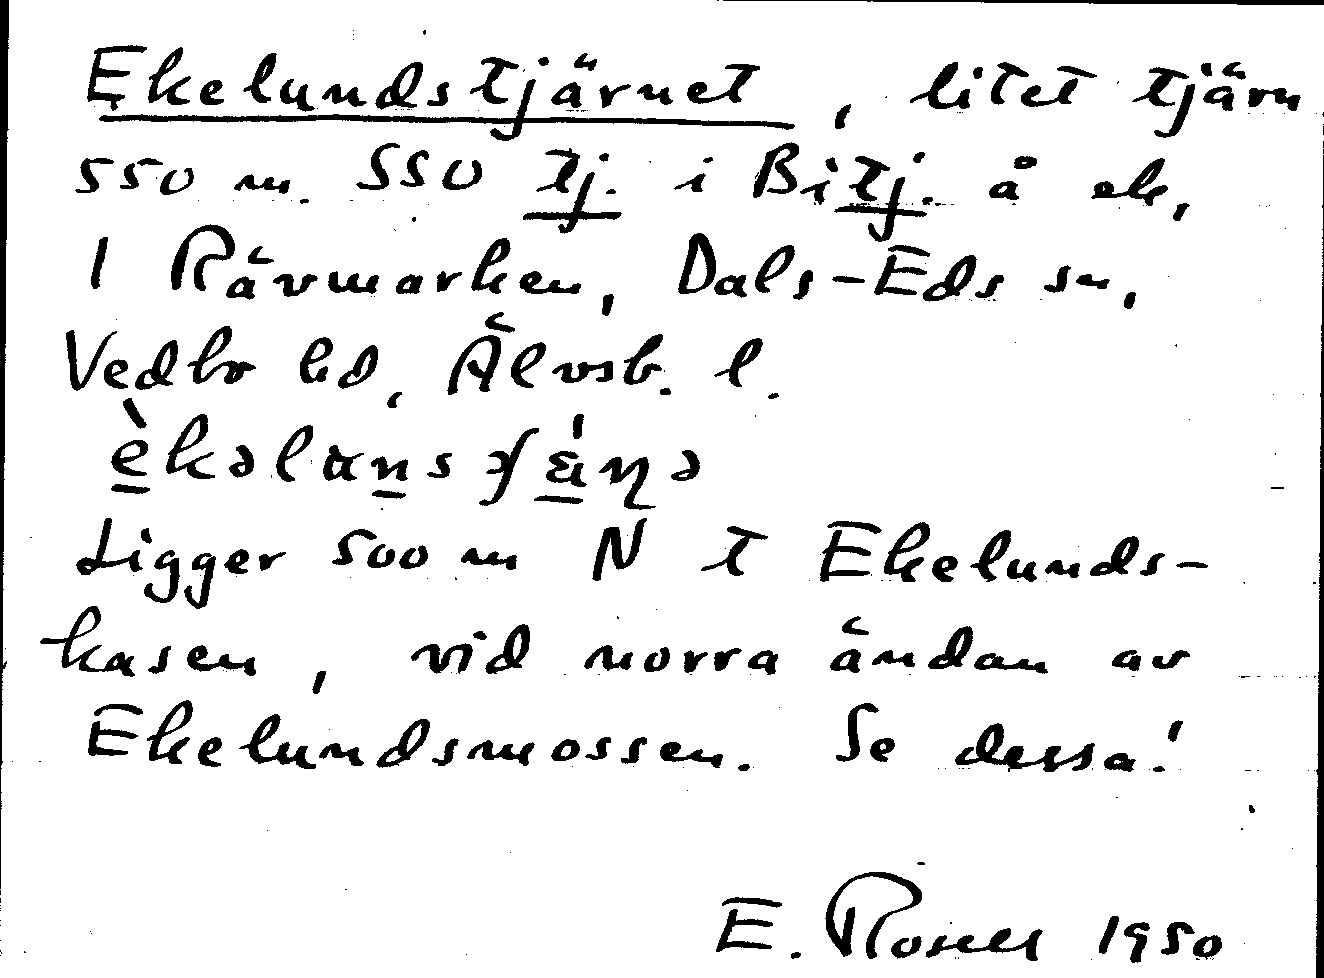 Ekelundstjärnet, litet tjärn
550 m. SSO tj. i Bitj. å ek,
1 Rävmarken, Dals-Eds sn,
Vedbo hd, Älvsb. l.
Ligger 500 m N t Ekelunds-
kasen, vid norra ändan av
Ekelundsmossen. Se dessa!
E. Rosell 1950